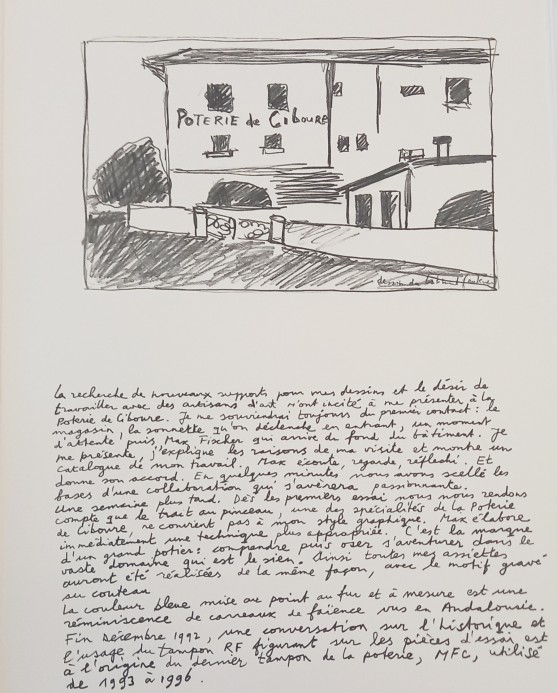 POTERIE de CIBOURE
dessin de
La recherche de nouveaux supports pour mes dessins et le désir de
travailler avec des artisans d'art m'ont incité à me présenter à la
Poterie de Ciboure. Je me souviendrai toujours du premier contact : le
magasin, la sonnette qu'on déclenche en entrant, un moment
d'attente puis, Max Fischer qui arrive du fond du bâtiment. Je
me présente, j'explique les raisons de ma visite et montre un
catalogue de mon travail. Max écoute, regarde, réfléchi. Et
donne son accord. En quelques minutes nous avons scellé les
bases d'une collaboration qui s'avérera passionnante.
Une semaine plus tard. Dès les premiers essai nous nous rendons
compte que le trait au pinceau, une des spécialités de la Poterie
de Ciboure, ne convient pas à mon style graphique. Max élabore
immédiatement une technique plus appropriée. C'est la marque
d'un grand potier : comprendre puis oser s'aventurer dans le
vaste domaine qui est le sien. Ainsi toutes mes assiettes
auront été réalisées de la même façon, avec le motif gravé
au couteau.
La couleur bleue mise au point au fur et à mesure est une
réminiscence de carreaux de faïence vus en Andalousie.
Fin Décembre 1992, une conversation sur l'historique et
l'usage du tampon RF figurant sur les pièces d'essai est
à l'origine du dernier tampon de la poterie, MFC, utilisé
de 1993 à 1996.